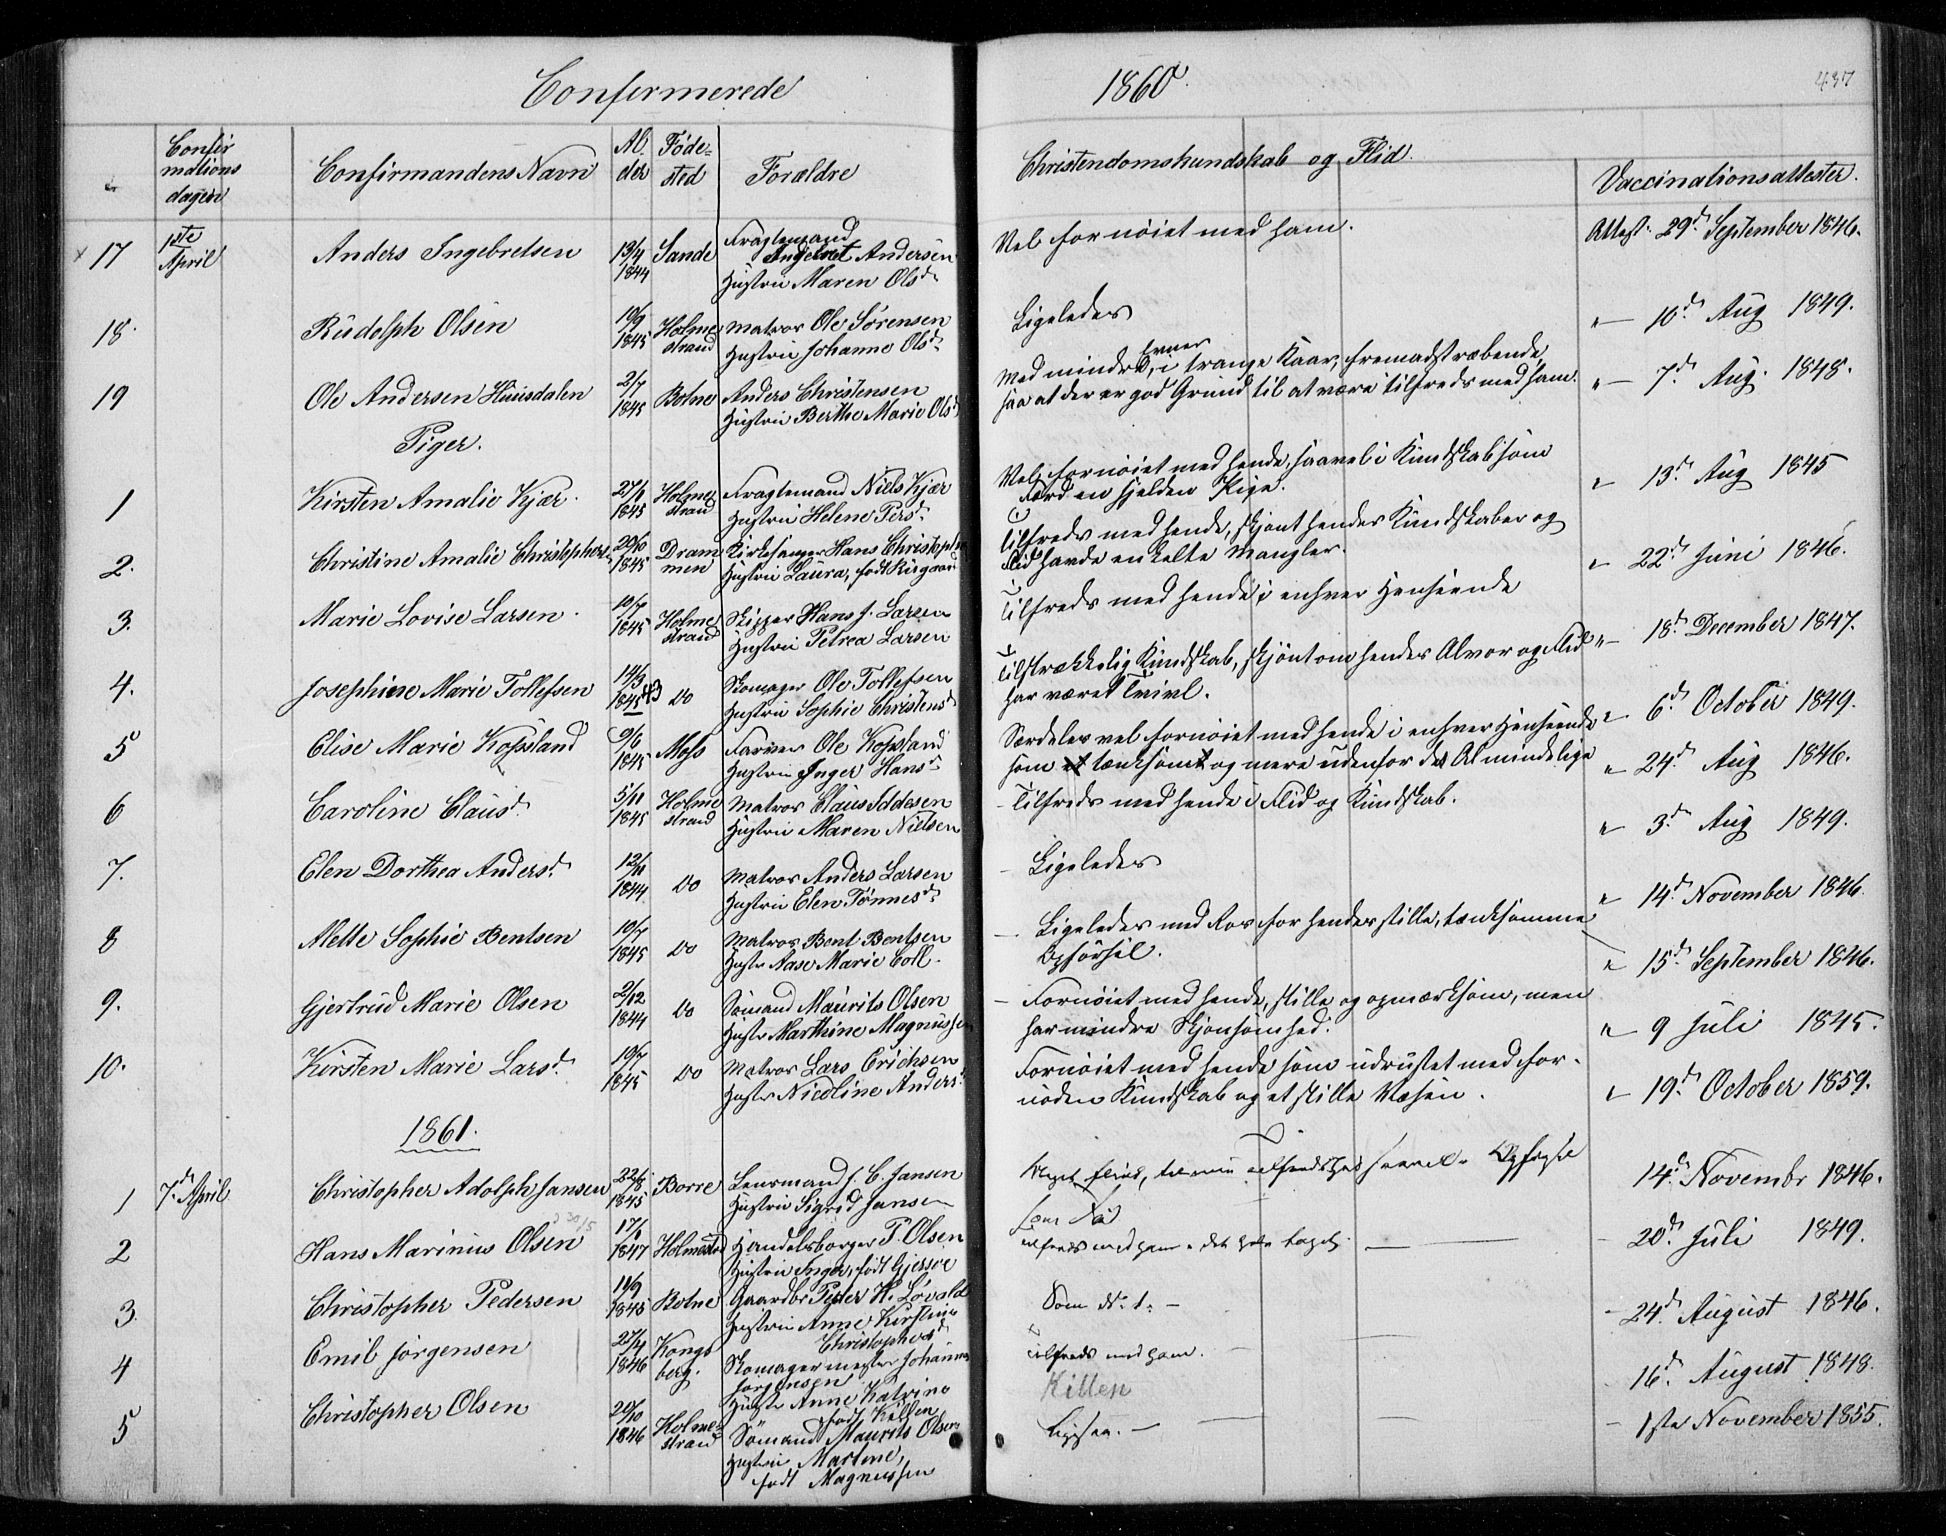 Confirmerede 1860. 437
Confirmationsdagen Confirmandens Navn Alder Fødested Forældre Christendomskundskab og Flid. Vaccinationsattester.
17 1ste April Anders Ingebretsen 13/4 1844 Sande Fragtemand Ingebret Andersen Hustru Maren Olsd. Vel fornøiet med ham. Attest: 29d. September 1846.
18. Rudolph Olsen 10/9 1845 Holmestrand Matros Ole Sørensen Hustru Johanne Olsd. Ligeledes 10d. Aug 1849.
19 Ole Andersen 2/7 1845 Botne Anders Christensen Hustru Berthe Marie Olsd Med mindre Evner, i trange Kaar, fremadstræbende,
saa at der er god Grund til at være tilfreds med ham. 7d. Aug. 1848.
Piger.
1 Kirsten Amalie Kjær. 1845 Holmestrand Fragtemand Niels Kjær Hustru Helene Persd. Vel fornøiet med hende, saavel i Kundskab som
Færd en sjelden Pige. 13d. Aug 1845
2. Christine Amalie Christophers 20/10 1845 Drammen Kirkesanger Hans Christophe Hustru Laura, født Tilfreds med hende, skjønt hendes Kundskaber og
Flid havde enkelte Mangler. 22d. Juni 1846.
3. Marie Lovise Larsen. 10/7 1845 Holmestrand Skipper Hans J. Larsen Hustru Petrea Larsen Tilfreds med hende i enhver Henseende 18d. December 1847.
4. Josephine Marie Tollefsen 14/3 1845 43 Do Skomager Ole Tollefsen Hustru Sophie Christensd Tilstrækkelig Kundskab, skjønt om hendes Alvor og Flid
har været Tvivl. 6d. October 1849.
5 Elise Marie Kossland 9/6 1845 Moss Farver Ole Kossland Hustru Inger Hansd. Særdeles vel fornøiet med hende i enhver Henseende
som tænksom og mere udenfor det Almindelige 24d. Aug 1846.
6 Caroline Clausd. 5/11 1845 Holmestrand Matros Claus Hustru Maren Nielsen Tilfreds med hende i Flid og Kundskab. 3d. Aug 1849.
7. Elen Dorthea Andersd. 1844 Do Matros Anders Larsen Hustru Elen Tønnesd. Ligeledes 14d. November 1846.
8 Mette Sophie Bentsen 10/7 1845 Do Matros Bent Bentsen Hustr Aase Marie Coll. Ligeledes med Ros for hendes stille, tænksomme
Opførsel. 15d. September 1846.
9. Gjertrud Marie Olsen 2/12 1844 Do Sömand Maurits Olsen Hustr Marthine Magnussen Fornøiet med hende, stille og opmærksom, men
har mindre Skjønsomhed. 9 Juli 1845.
10. Kirsten Marie Larsd. 19/7 1845 Do Matros Lars Erichsen Hustr Nicoline Andersd. Fornøiet med hende som udrustet med for-
nøden Kundskab og et stille Væsen. 19d. October 1859.
1861.
1 7d. April Christopher Adolph Jansen 22/8 1845 Borre Lensmand J. C. Jansen Hustru Sigrid Jansen Meget flink, til min Tilfredshed saavel 14d. Novembr 1846.
2 Hans Marinus Olsen 1847 Holmestrd Handelsborger P. Olsen Hustru Inger, født Gjersøe tilfreds med ham 20d. Juli 1849.
3. Christopher Pedersen 11/9 1845 Botne Gaardbr Peder H. Løvald Hustru Anne Kirstine Christophersd Som No 1. 24d. August 1846.
4 Emil Jørgensen 27/4 1846 Kongsberg. Skomagermester Johannes Jørgensen Hustr Anne Katrine født Killen Tilfreds med ham. Killen 16d. August 1848.
5 Christopher Olsen 20/10 1846 Holmestrand Sömand Maurits Olsen Hustru Martine, født Magnussen Ligesaa. 1ste November 1855.